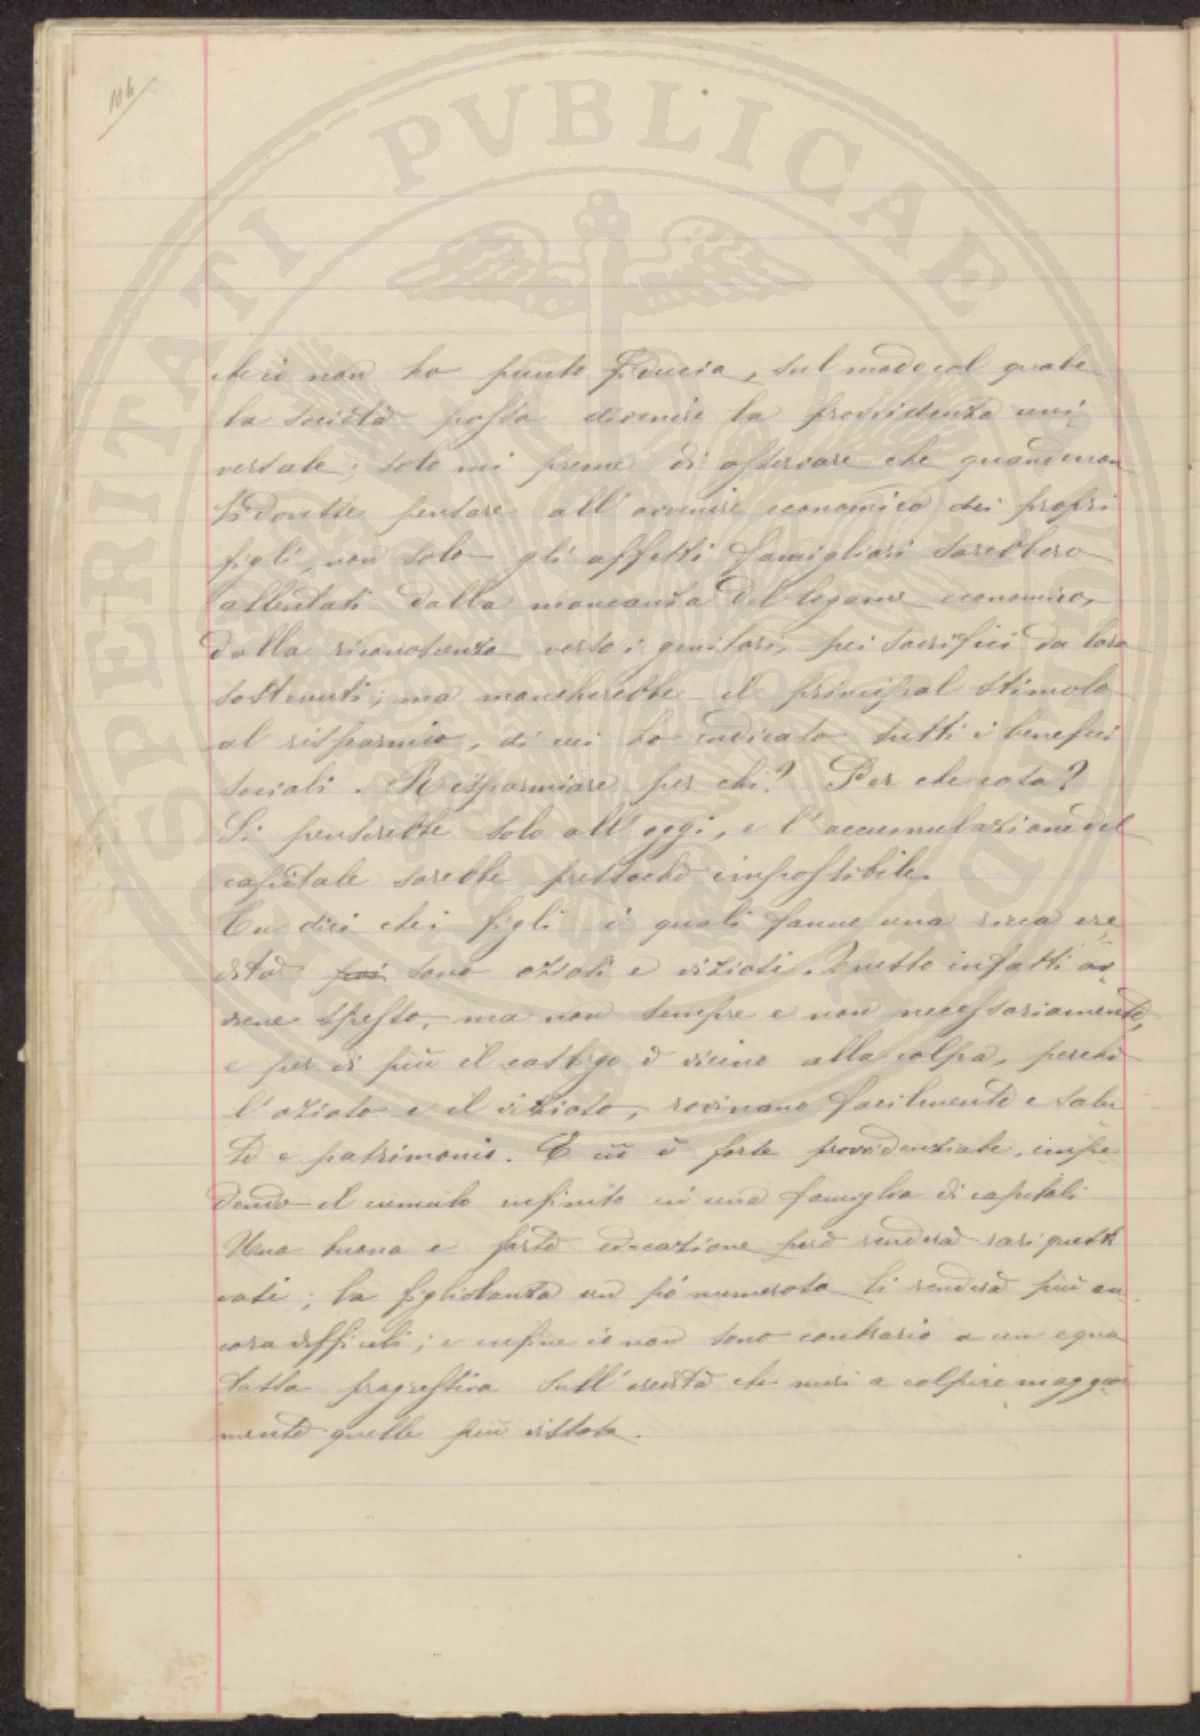 104
che io non ho punto fiducia, sul modo col quale
la società possa divenire la provvidenza uni
versale; solo mi preme di osservare che quando non
si dovette pensare all'avvenire economico dei propri
figli, non solo gli affetti famigliari sarebbero
allentati dalla mancanza del legame economico,
dalla riconoscenza verso i genitori, pei sacrifici da loro
sostenuti; ma mancherebbe il principal stimolo
al risparmio, di cui ho indicato tutti i benefici
sociali. Risparmiare per chi? Per che cosa?
Si penserebbe solo all'oggi, e l'accumulazione del
capitale sarebbe pressochè impossibile.
Tu dici che i figli i quali fanno una ricca ere
dità poi sono oziosi e viziosi. Questo infatti av
viene spesso, ma non sempre e non necessariamente,
e per di più il castigo è vicino alla colpa, perchè
l'ozioso e il vizioso, rovinano facilmente e salu
te e patrimonio. E ciò è forse provvidenziale, impe
dendo il cumulo infinito in una famiglia di capitali
Una buona e forte educazione però renderà rari questi
casi; la figliolanza un pò numerosa li renderà più an
cora difficili; e infine io non sono contrario a una equa
tassa progressiva sull'eredità che miri a colpire maggior
mente quelle più vistose.
PROSPERITATI PVBLICAE